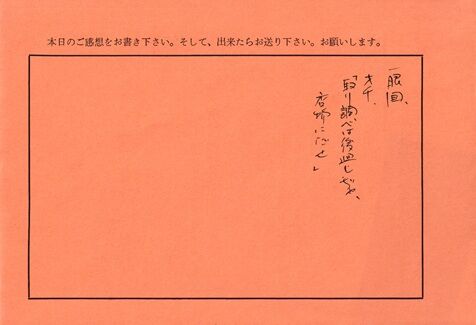 本日のご感想をお書き下さい。そして、出来たらお送り下さい。お願いします。
一眼国、
オチ、
「取り調べは後廻しぢゃ、
にだせ」